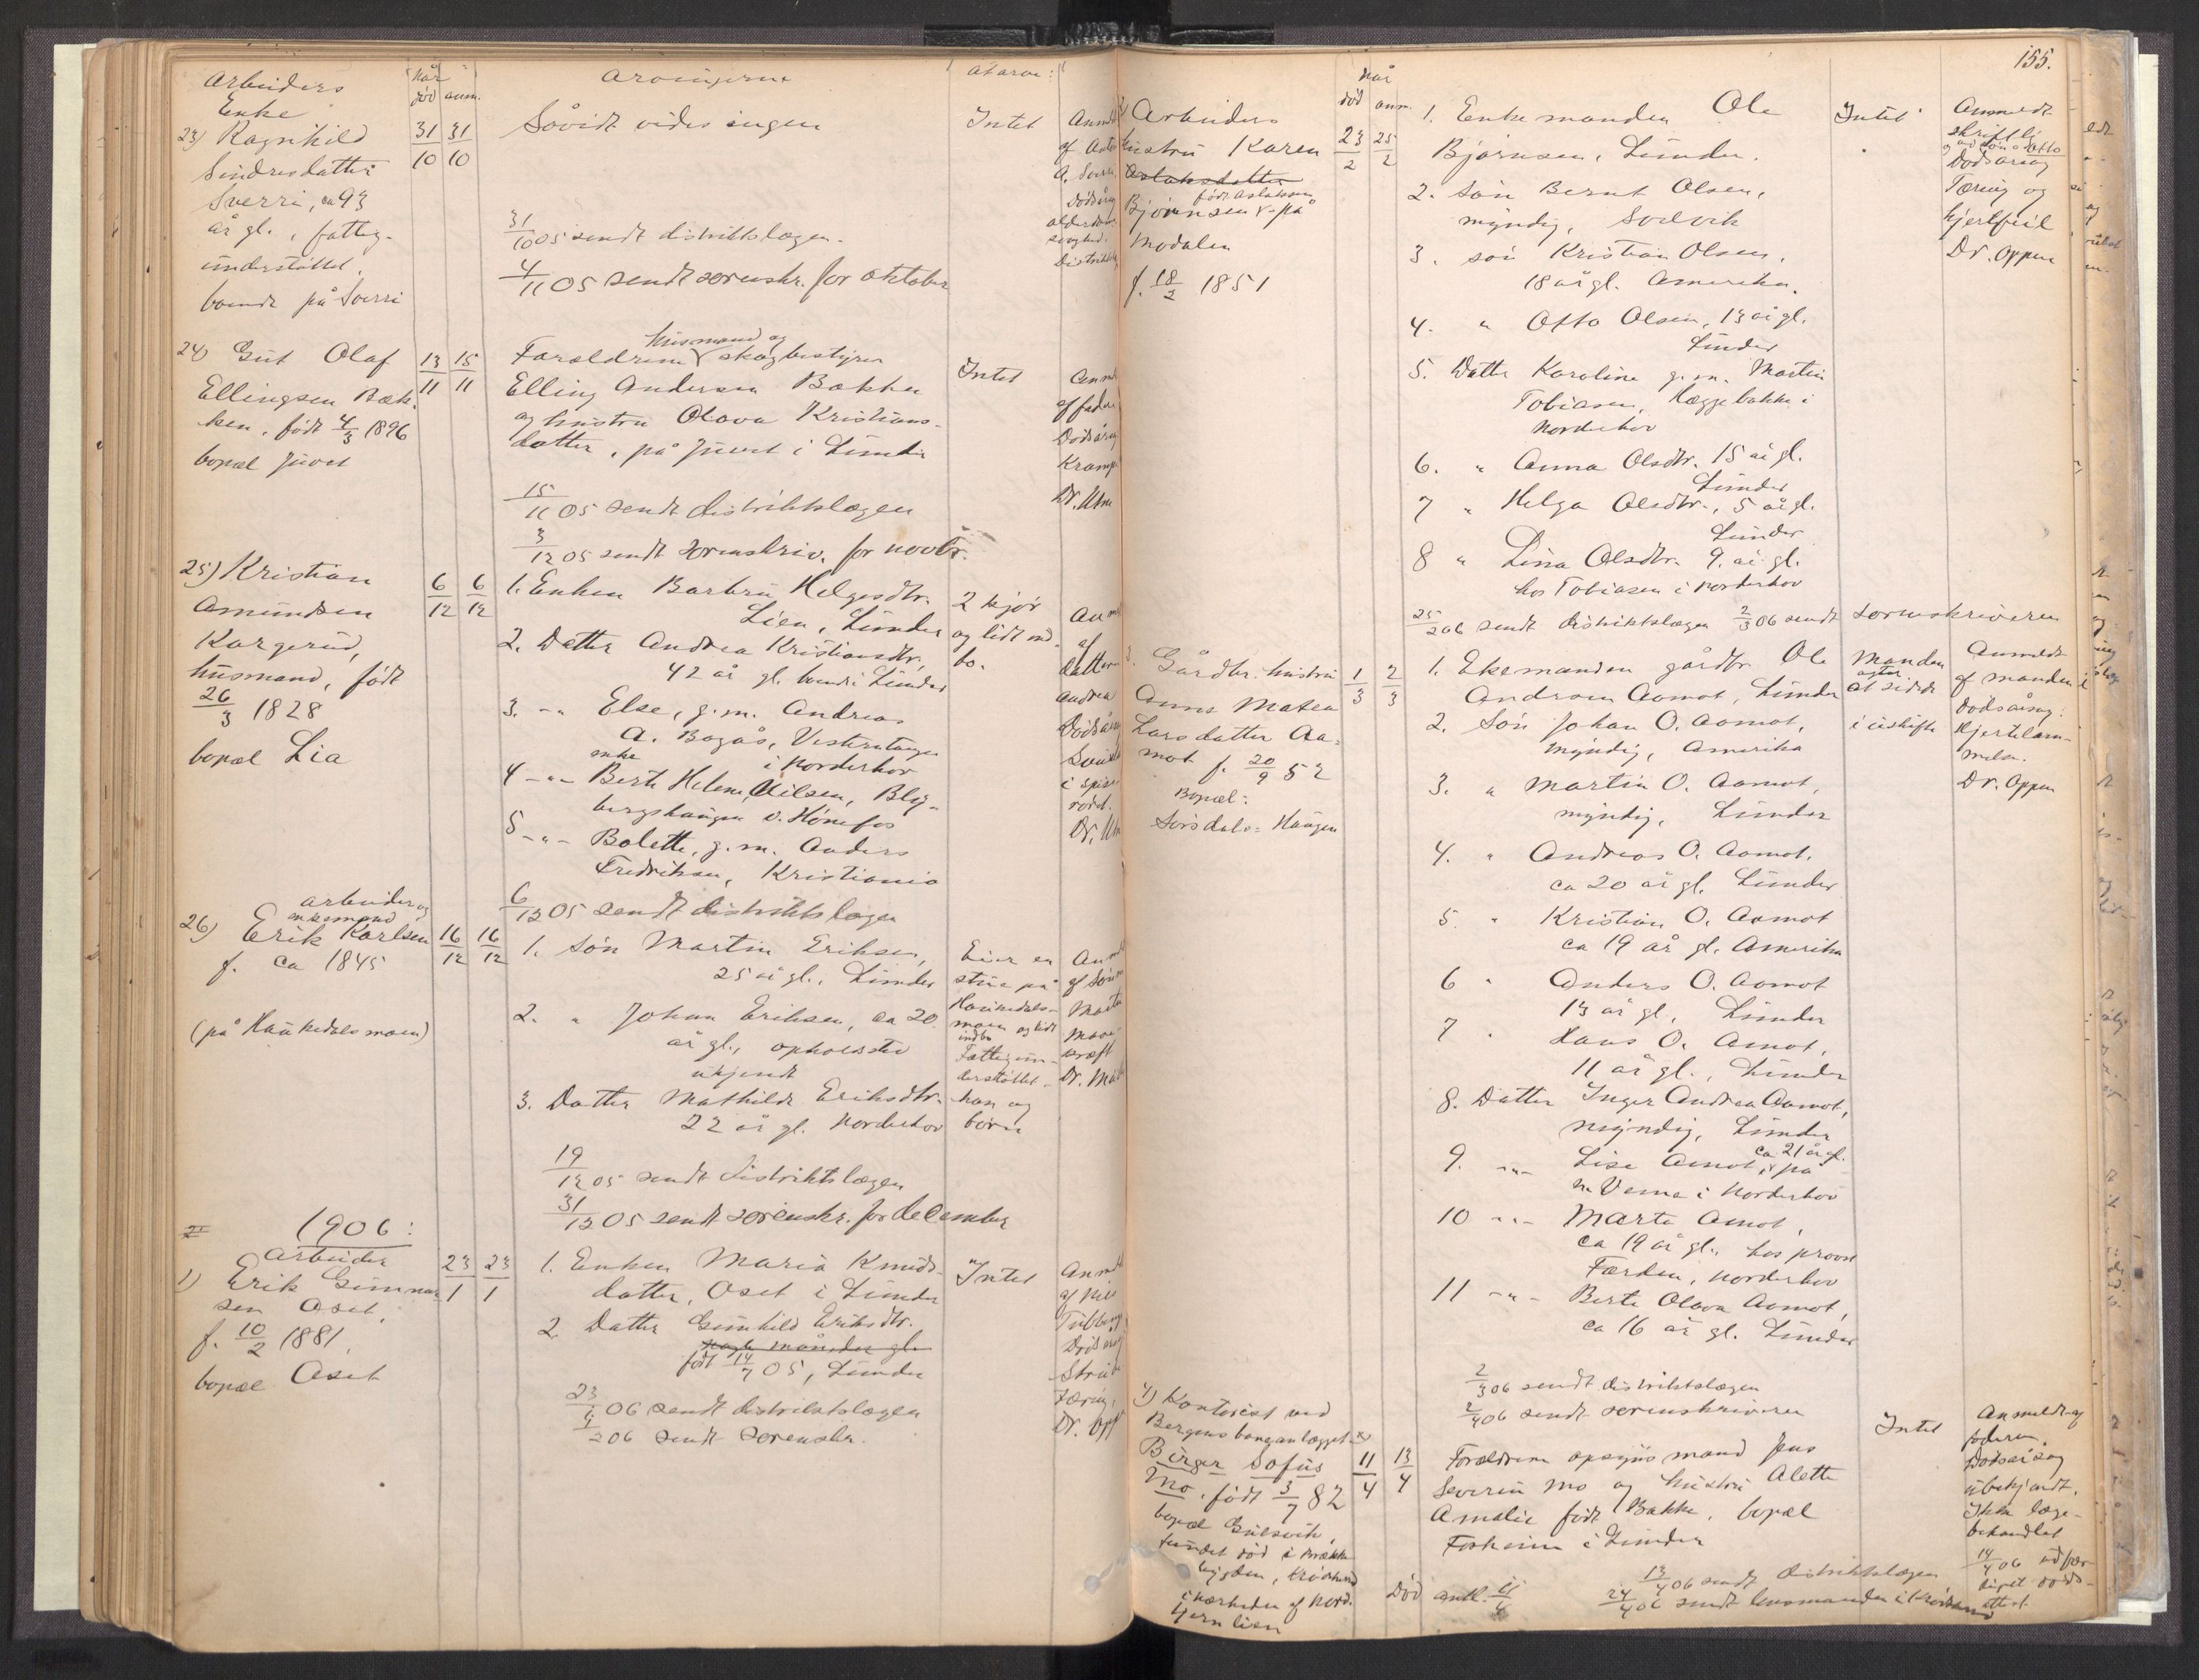 Arbeiders
Enke
når
død
anm.
Arvingerne
At arve:
23) Ragnhild
Sindresdatter
Sverri, ca 93
år gl., fattig-
understøttet.
boende på Sverri
31/10
31/10
Såvidt vides ingen
Intet
31/10 05 sendt distriktslægen.
4/11 05 sendt sorenskr. for oktober
24) Gut Olaf
Ellingsen Bæk-
ken, født 4/3 1896
bopæl Juvet
13/11
15/11
Forældrene husmand og skogbestyrer
Elling Andersen Bækken
og hustru Olava Kristians-
datter, på Juvet i Lunder
Intet
15/11 05 sendt distriktslægen
3/12 05 sendt sorenskriv. for novbr.
25) Kristian
Amundsen
Kargerud,
husmand, født
26/3 1828
bopæl Lia
6/12
6/12
1. Enken Barbru Helgesdtr.
Lien, Lunder
2. Datter Andrea Kristiansdtr.
42 år gl. boende i Lunder
3. -"- Else, g.m. Andreas
A. Bagås, Vestretangen
i Norderhov
4 -"- enke Berte Helene Nilsen, Bly-
bergshaugen v. Hønefos
5 -"- Bolette, g.m. Anders
Fredriksen, Kristiania
2 kjør
og lidt ind-
bo.
6/12 05 sendt distriktslægen
26) arbeider og
enkemand
Erik Karlsen
f. ca 1845
(på Haukedalsmoen)
16/12
16/12
1. Søn Martin Eriksen,
25 år gl., Lunder
2. " Johan Eriksen, ca 20
år gl., opholdssted
ukjendt
3. Datter Mathilde Eriksdtr.
22 år gl. Norderhov
Eier en
stue på
Haukedals-
moen og lidt
indbo
Fattigun-
derstøttet
han og
børn
19/12 05 sendt distriktslægen
31/12 05 sendt sorenskr. for december
1906:
1) arbeider
Erik Gunnar
sen Aset,
f. 10/2 1881,
bopæl Aset
23/1
23/1
1. Enken Maria Knuds-
datter, Aset i Lunder
2. Datter Gunhild Eriksdtr.
nogle måneder gl.
født 14/7 05, Lunder
Intet
23/1 06 sendt distriktslægen
206 sendt sorenskr.
155.
når
død
anm.
Arbeiders
hustru Karen
Aslaksdatter
Bjørnsen født Aslaksen på
Modalen
f. 18/2 1851
23/2
25/2
1. Enkemanden Ole
Bjørnsen, Lunder.
2. Søn Bernt Olsen,
myndig, Svelvik
3. søn Kristian Olsen,
18 år gl. Amerika.
4. " Otto Olsen, 13 år gl.
Lunder
5. Datter Karoline g.m. Martin
Tobiasen, Hæggebakke i
Norderhov
6. " Anna Olsdtr. 15 år gl.
Lunder
7 " Helga Olsdtr., 5 år gl.
Lunder
8 " Lina Olsdtr. 9 år gl.
hos Tobiasen i Norderhov
Intet
Anmeldt
skriftlig
Dødsårsag
Tæring og
hjertefeil
Dr. Oppen
25/2 06 sendt distriktslægen 2/3 06 sendt sorenskriveren
Gårdbr. hustru
Anne Matea
Larsdatter Aa-
mot f. 20/9 52
Bopæl:
Sørsdals-Haugen
1/3
2/3
1. Ekemanden gårdbr Ole
Andersen Aamot, Lunder
2. Søn Johan O. Aamot,
myndig, Amerika
3. " Martin O. Aamot,
myndig, Lunder
4. " Andreas O. Aamot.
ca 20 år gl. Lunder
5 " Kristian O. Aamot
ca 19 år gl. Amerika
6 " Anders O. Aamot
13 år gl, Lunder
7 " Hans O. Amot,
11 år gl., Lunder
8. Datter Inger Andrea Aamot,
myndig, Lunder
9. -"- Lise Amot, ca 21 år gl. på
n. Veme i Norderhov
10 -"- Marte Amot,
ca 19 år gl., hos provst
Færden, Norderhov
11 -"- Berte Olava Aamot,
ca 16 år gl. Lunder
Manden
agter
at sidde
i uskifte
Anmeldt
af manden
Dødsårsag:
Hjertelam-
melse.
Dr. Oppen
2/3 06 sendt distriktslægen
2/4 06 sendt sorenskriveren
4) Kontorist ved
Bergensbaneanlægget
Birger Sofus
Mo. født 3/7 82
bopæl Gulsvik,
fundet død i Krække
bygden, Krødsherred
i nærheden af Nord.
Hjernlien
11/4
13/4
Forældrene opsynsmand Jens
Severin Mo og hustru Alette
Amalie født Bakke, bopæl
Forheim i Lunder
Intet
Anmeldt af
faderen
Dødsårsag
ubekjendt.
Ikke læge-
behandlet
14/4 06 udfær-
diget døds-
attest.
Død antl. 11/4
13/4 06 sendt distriktslægen
24/4 06 sendt lensmanden i Krødsherred